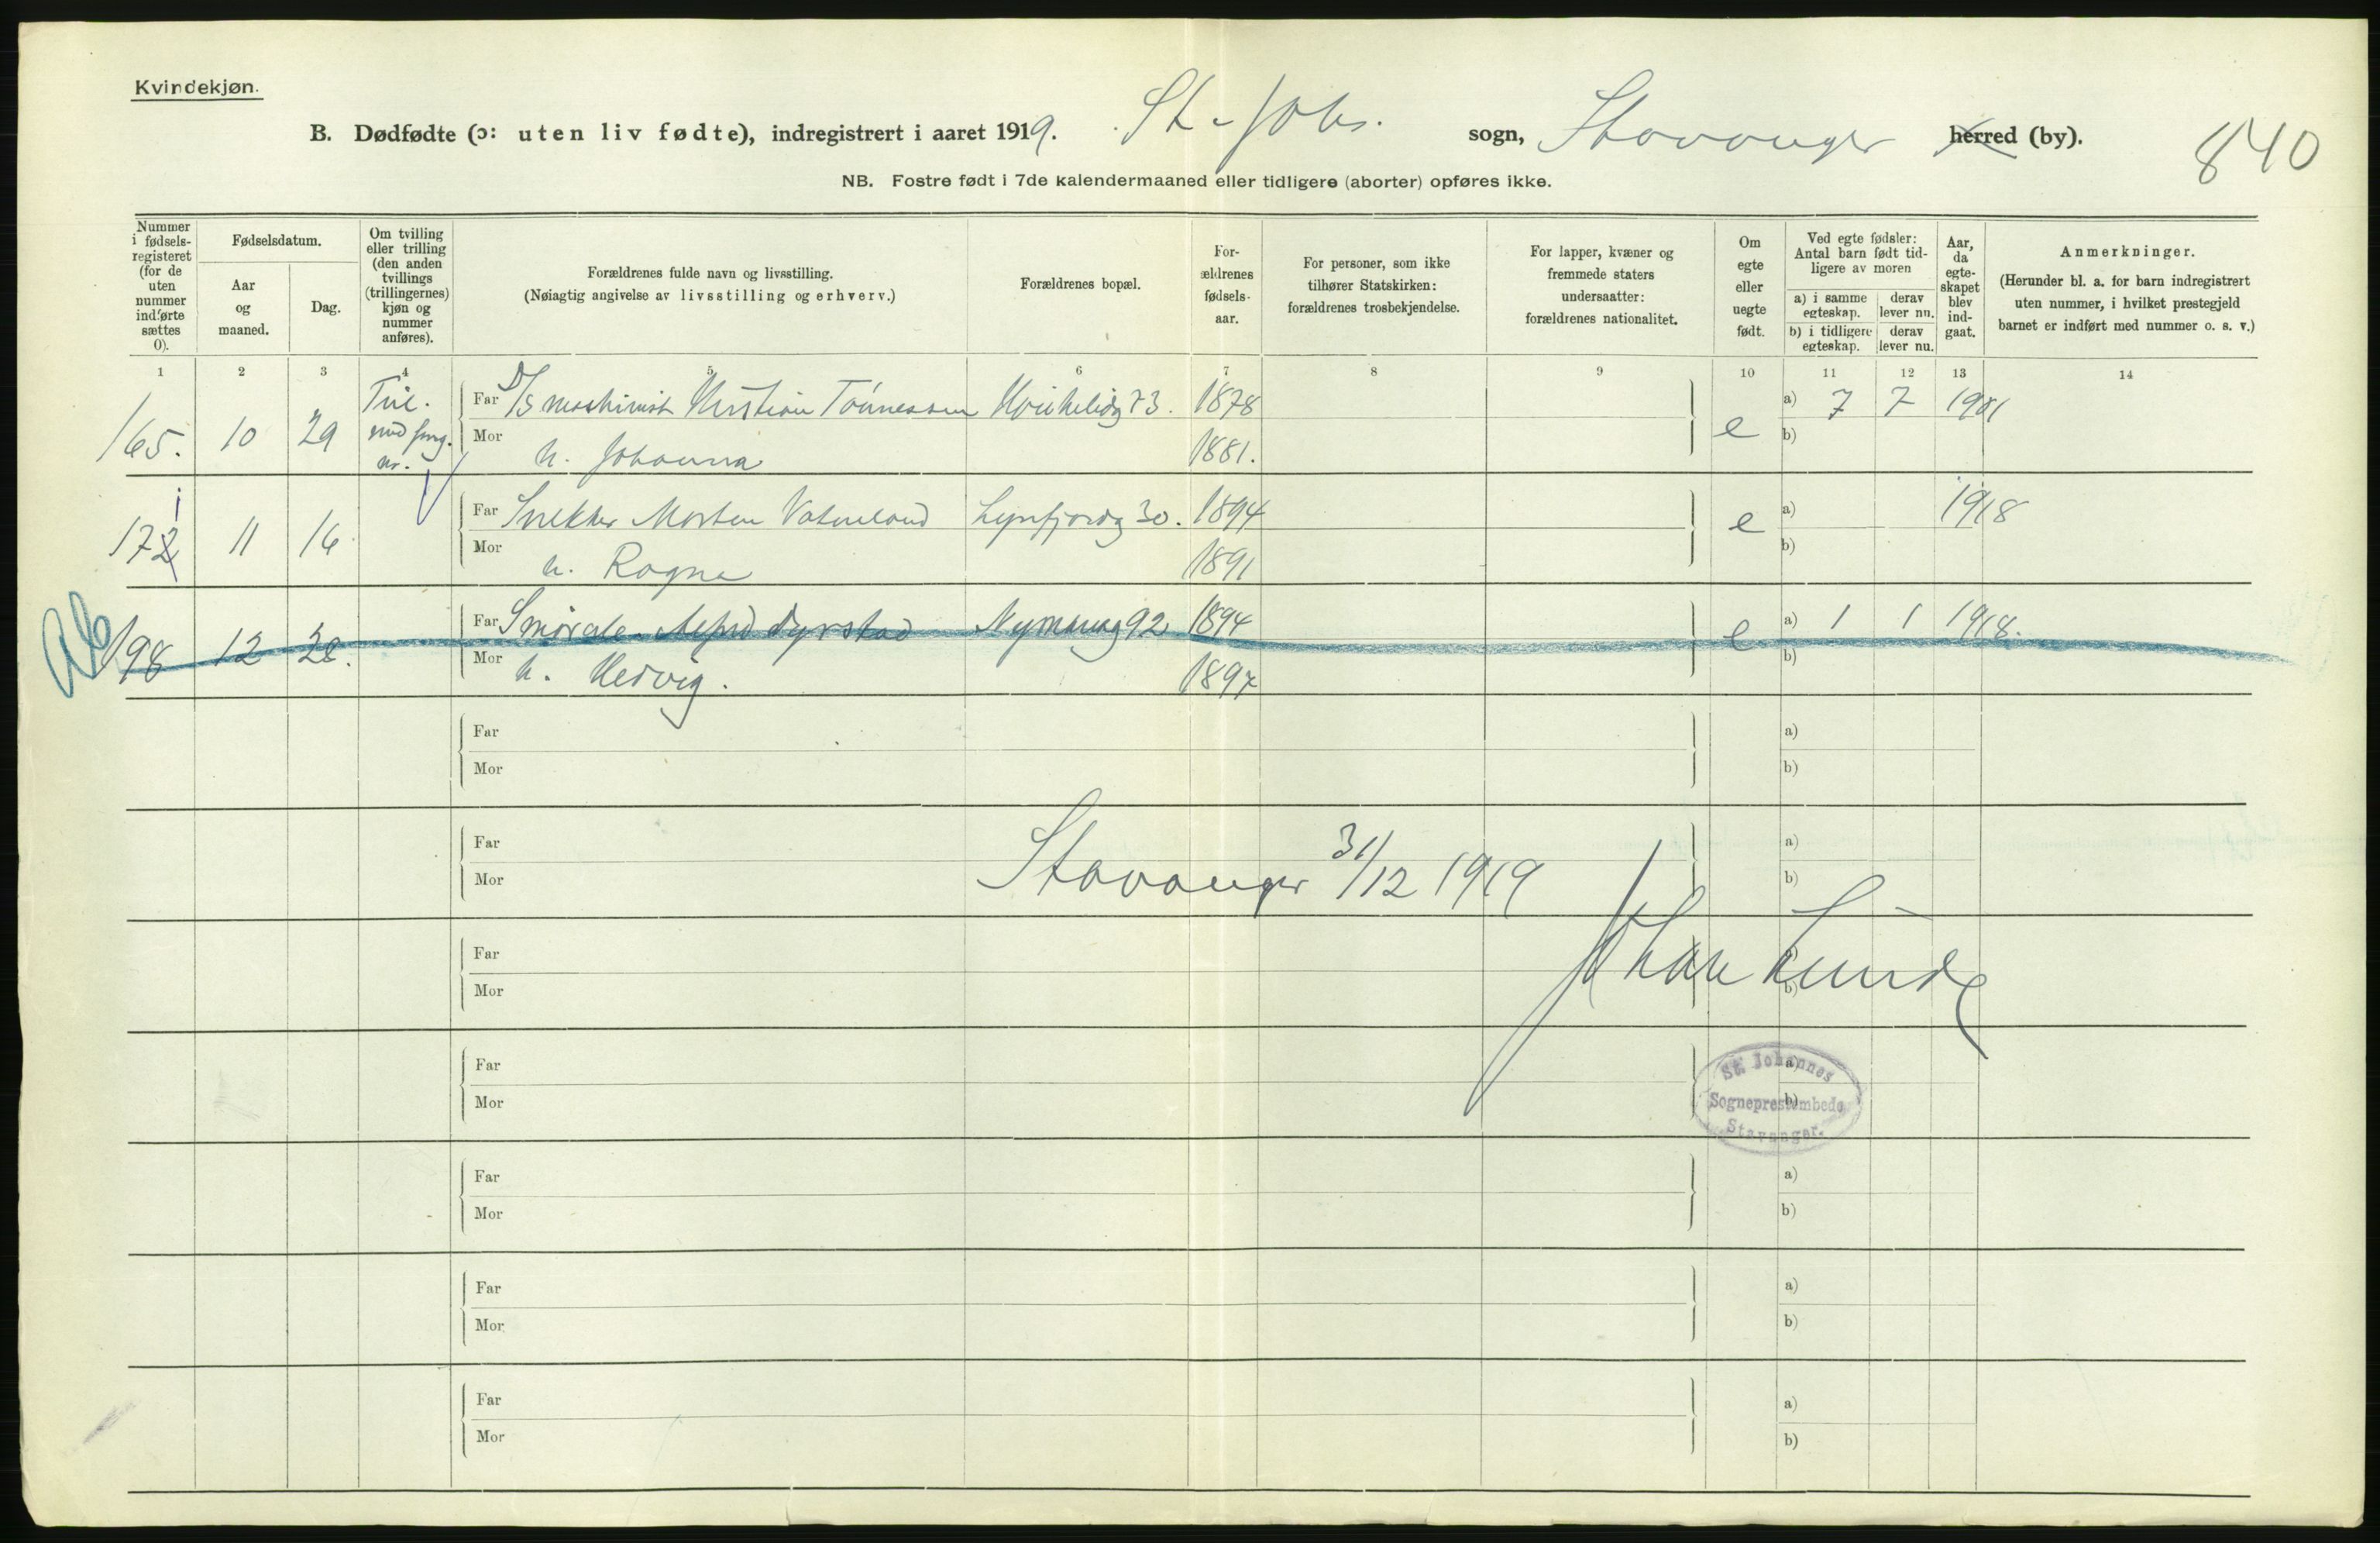 Kvindekjøn.
B. Dødfødte (ɔ: uten liv fødte), indregistrert i aaret 1919. St. Johs. sogn, Stavanger herred (by).
840
NB. Fostre født i 7de kalendermaaned eller tidligere (aborter) opføres ikke.
Nummer i fødsels-registeret (for de uten nummer indførte sættes 0).
Fødselsdatum.
Aar og maaned.
Dag.
Om tvilling eller trilling (den anden tvillings (trillingernes) kjøn og nummer anføres).
Forældrenes fulde navn og livsstilling.
(Nøiagtig angivelse av livsstilling og erhverv.)
Forældrenes bopæl.
For-ældrenes fødsels-aar.
For personer, som ikke tilhører Statskirken: forældrenes trosbekjendelse.
For lapper, kvæner og fremmede staters undersaatter: forældrenes nationalitet.
Om egte eller uegte født.
Ved egte fødsler: Antal barn født tid-ligere av moren
a) i samme egteskap.
derav lever nu.
b) i tidligere egteskap.
derav lever nu.
Aar, da egte-skapet blev ind-gaat.
Anmerkninger.
(Herunder bl. a. for barn indregistrert uten nummer, i hvilket prestegjeld barnet er indført med nummer o. s. v.)
1 2 3 4 5 6 7 8 9 10 11 12 13 14
165. 10 29 Far D/S maskinist Kristian Tönnessen 73. 1878 e a) 7 7 1901
Mor h. Johanna 1881. b)
172 11 16 Far Snekker Morten Vatneland Lysefjordg 30. 1894 e a) 1918
Mor h. Ragna 1891 b)
198 12 28. Far Dyrstad 92 1894 e a) 1 1 1918.
Mor h. Hedvig. 1897 b)
Far a)
Mor b)
Far a)
Mor b)
Stavanger 31/12 1919
Far
Mor b)
Johan Lunde
Far a)
Mor b)
St. Johannes
Sogneprestembede
Stavanger.
Far a)
Mor b)
Far a)
Mor b)
Far a)
Mor b)